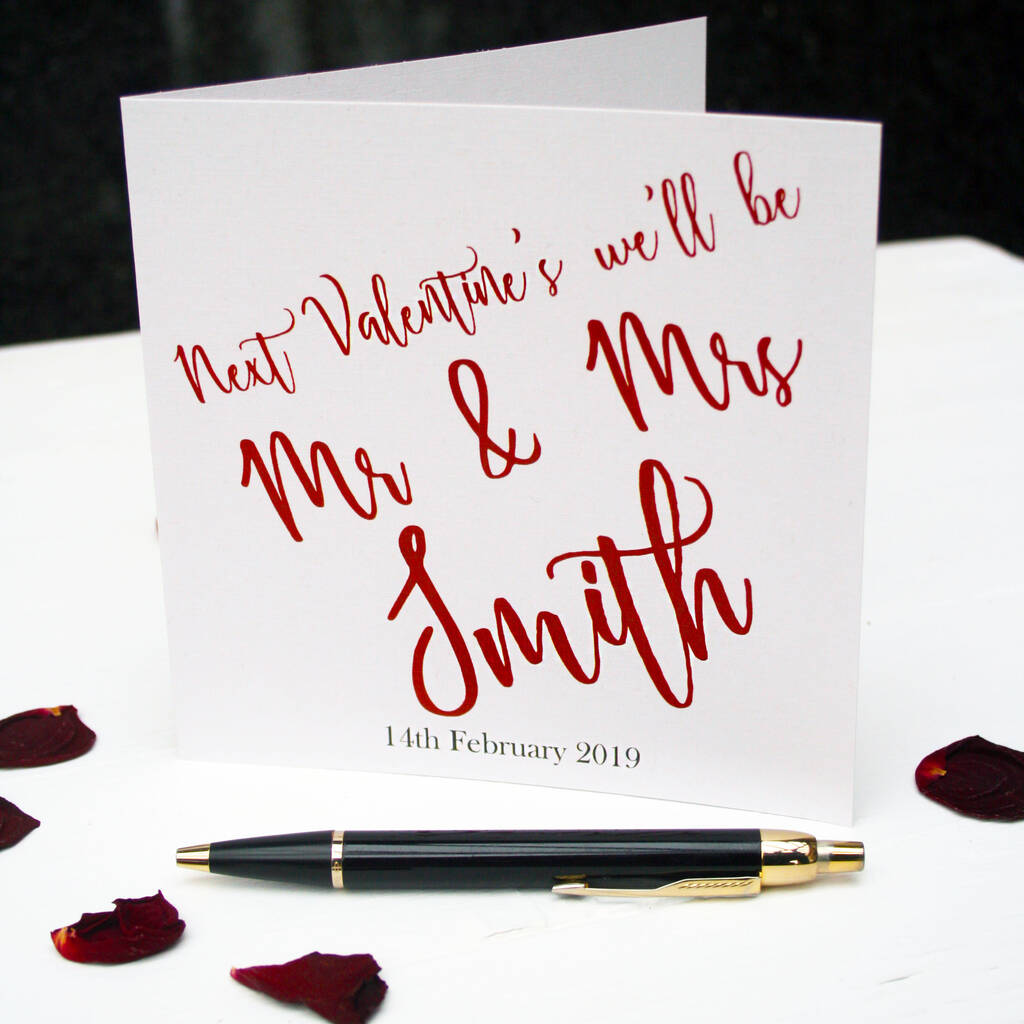 Next Valentine's we'll be
Mr & Mrs
Smith
14th February 2019